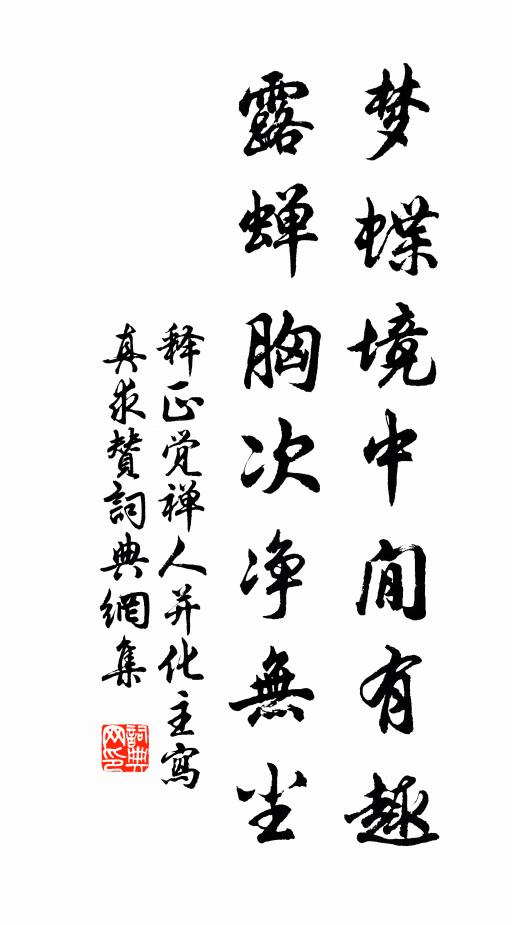 梦蝶境中闲有趣
露蝉胸次净無尘
释正觉禅人并化主寫
真求赞詞典網集
詞典网印